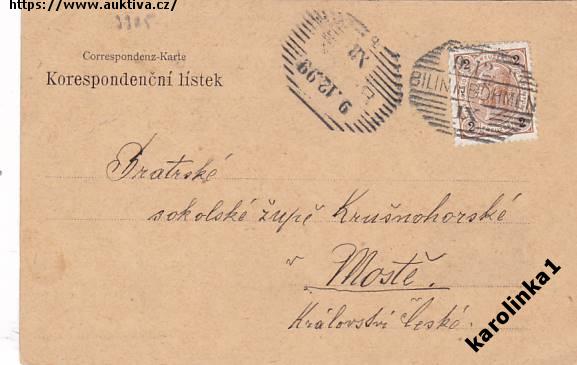 https://www.auktiva.cz/
3305
Correspondenz-Karte
Korespondenční lístek
9.12.99
BILIN IN BÖHMEN
IX
2 2
2 2
Bratrské
sokolské župě Krušnohorské
v Mostě.
Království České.
karolinka1